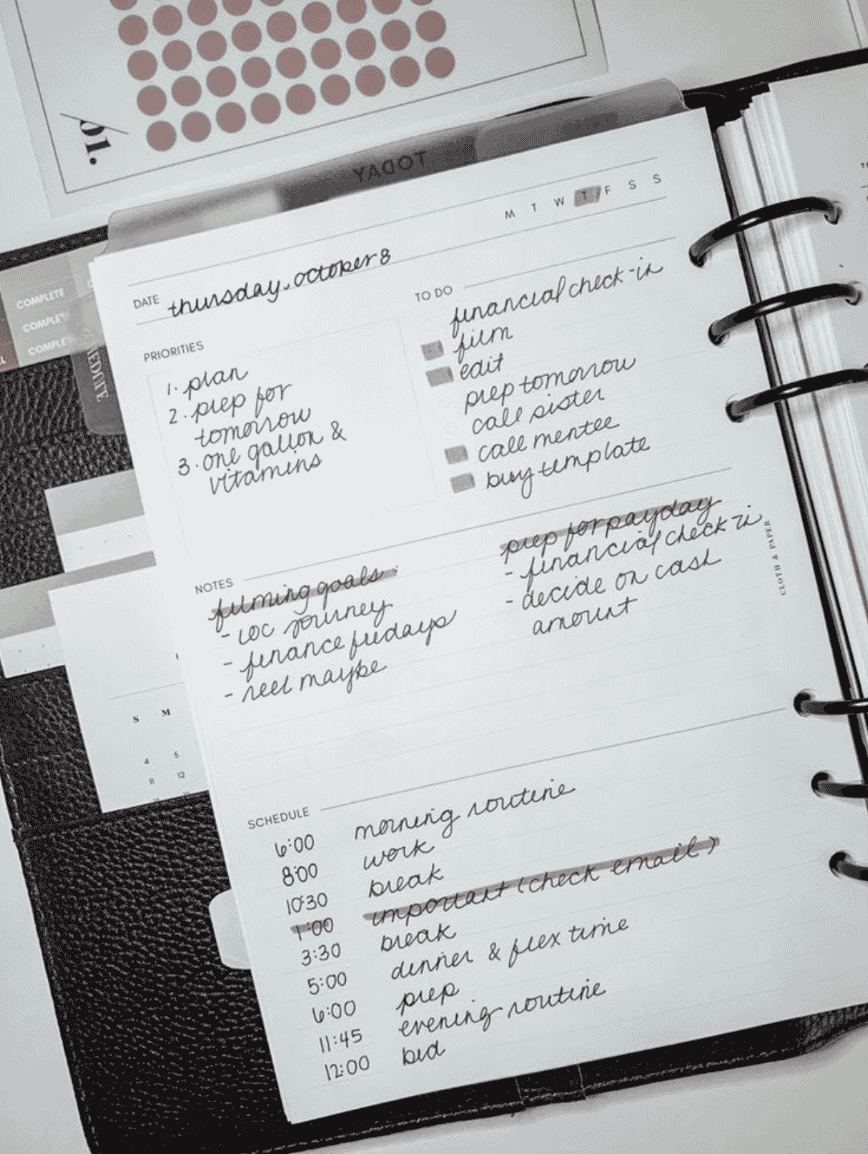 01.
TODAY
M T W T F S S
DATE thursday, october 8
COMPLETE
COMPLETE
COMPLETE
PRIORITIES
1. plan
2. prep for
tomorrow
3. one gallon &
vitamins
TO DO
financial check-in
film
edit
prep tomorrow
call sister
call mentee
buy template
NOTES
filming goals:
- loc journey
- finance fridays
- reel maybe
prep for payday
- financial check-in
- decide on cash
amount
CLOTH & PAPER
S M
4 5
11 12
SCHEDULE
6:00 morning routine
8:00 work
10:30 break
1:00 important (check email)
3:30 break
5:00 dinner & flex time
6:00 prep
11:45 evening routine
12:00 bed